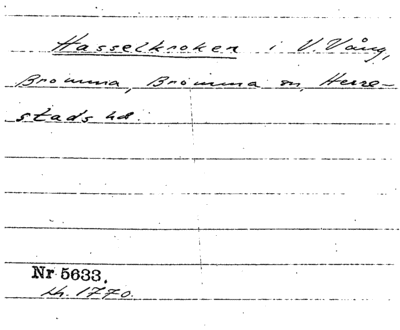 Hasselkroken i V. Vång,
Bromma, Bromma sn, Herre-
stads hd.
Nr 5633.
Kr. 1770.